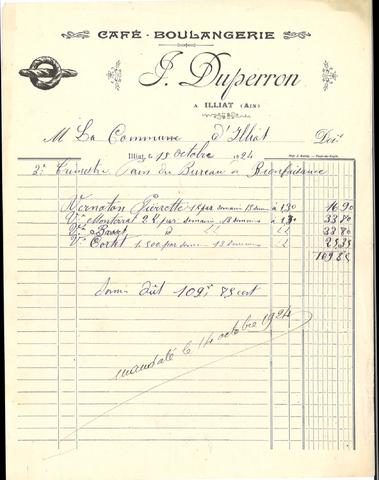 CAFÉ - BOULANGERIE
J. Duperron
A ILLIAT (AIN)
M La Commune d'Illiat Doit
Illiat, le 15 octobre 1924
3e Trimestre Pain du Bureau de Bienfaisance
Vernoton Pierrette 1k par semaine 13 à 1 30 16.90
Ve Montéral 2k par semaine 13 semaines à 1 30 33.80
Ve d° 33.80
Ve 1.500 par 13 semaines 25.35
109 85
Somme Dût 109f 85 cent
mandaté le 14 octobre 1924